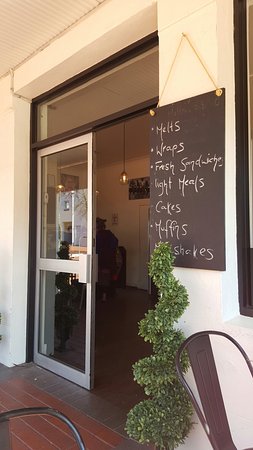 • Melts
• Wraps
• Fresh Sandwiche
light Meals
Cakes
• Muffins
shakes